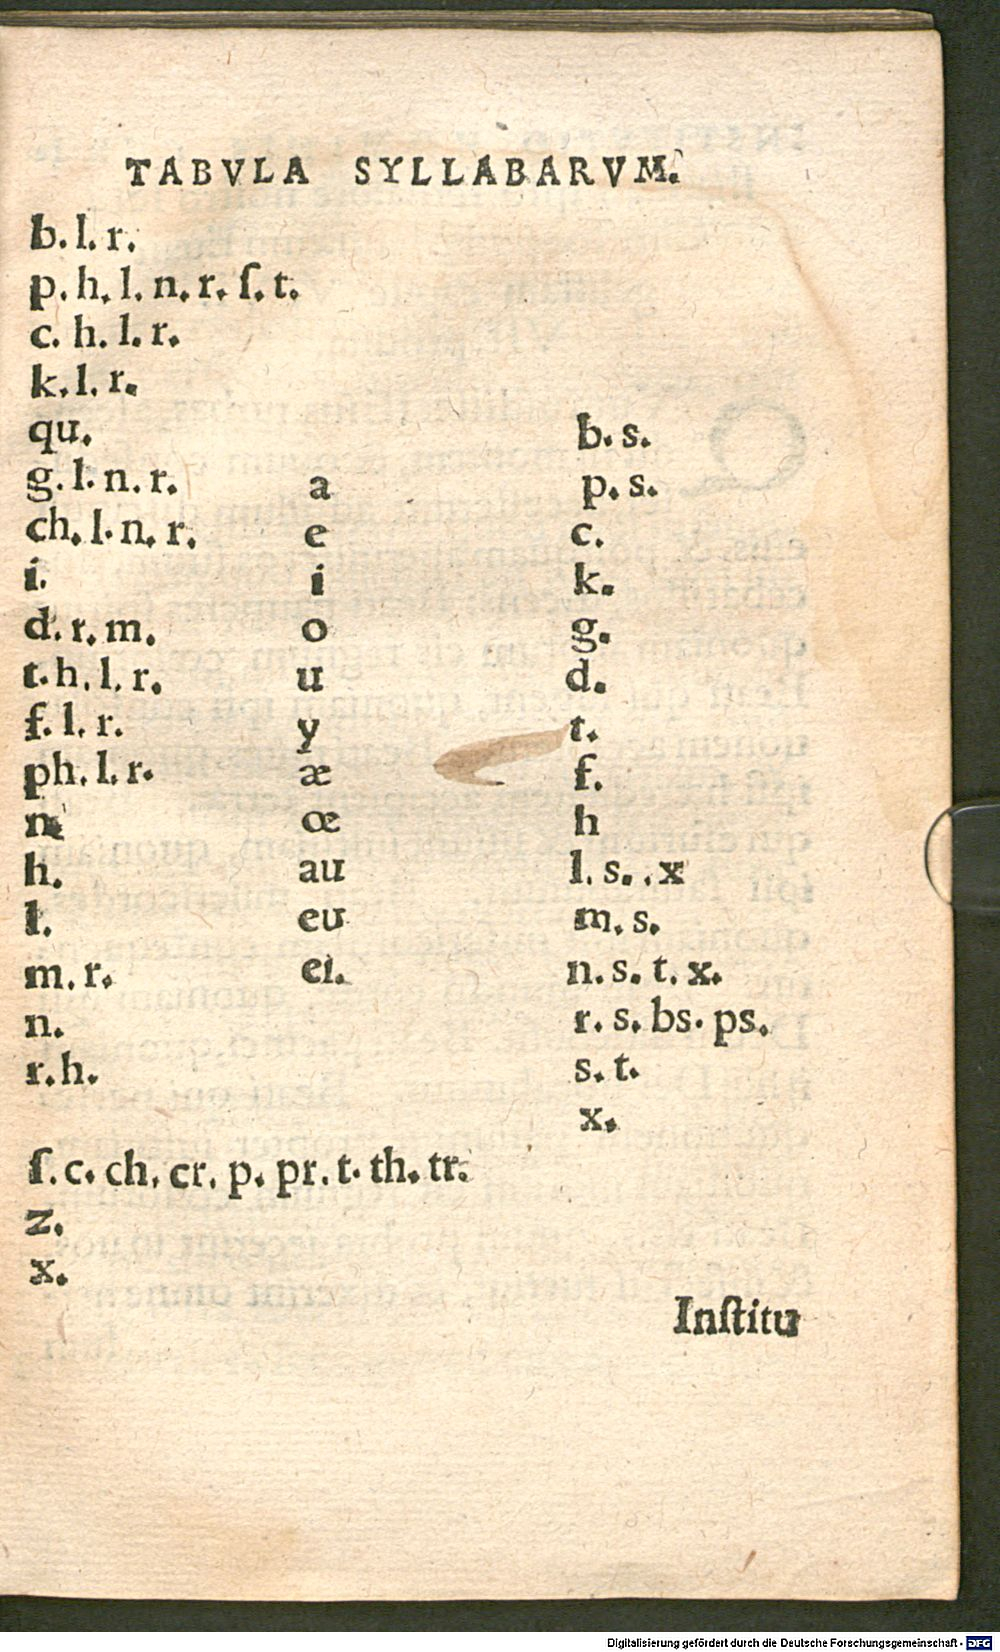 TABVLA SYLLABARVM.
b. l. r.
p. h. l. n. r. ſ. t.
c. h. l. r.
k. l. r.
qu.
g. l. n. r.
ch. l. n. r.
i.
d. r. m.
t. h. l. r.
f. l. r.
ph. l. r.
n.
h.
l.
m. r.
n.
r. h.
ſ. c. ch. cr. p. pr. t. th. tr.
z.
x.
a
e
i
o
u
y
æ
œ
au
eu
ei.
b. s.
p. s.
c.
k.
g.
d.
t.
f.
h
l. s. . x
m. s.
n. s. t. x.
r. s. bs. ps.
s. t.
x.
Inſtitu
Digitalisierung gefördert durch die Deutsche Forschungsgemeinschaft - DFG